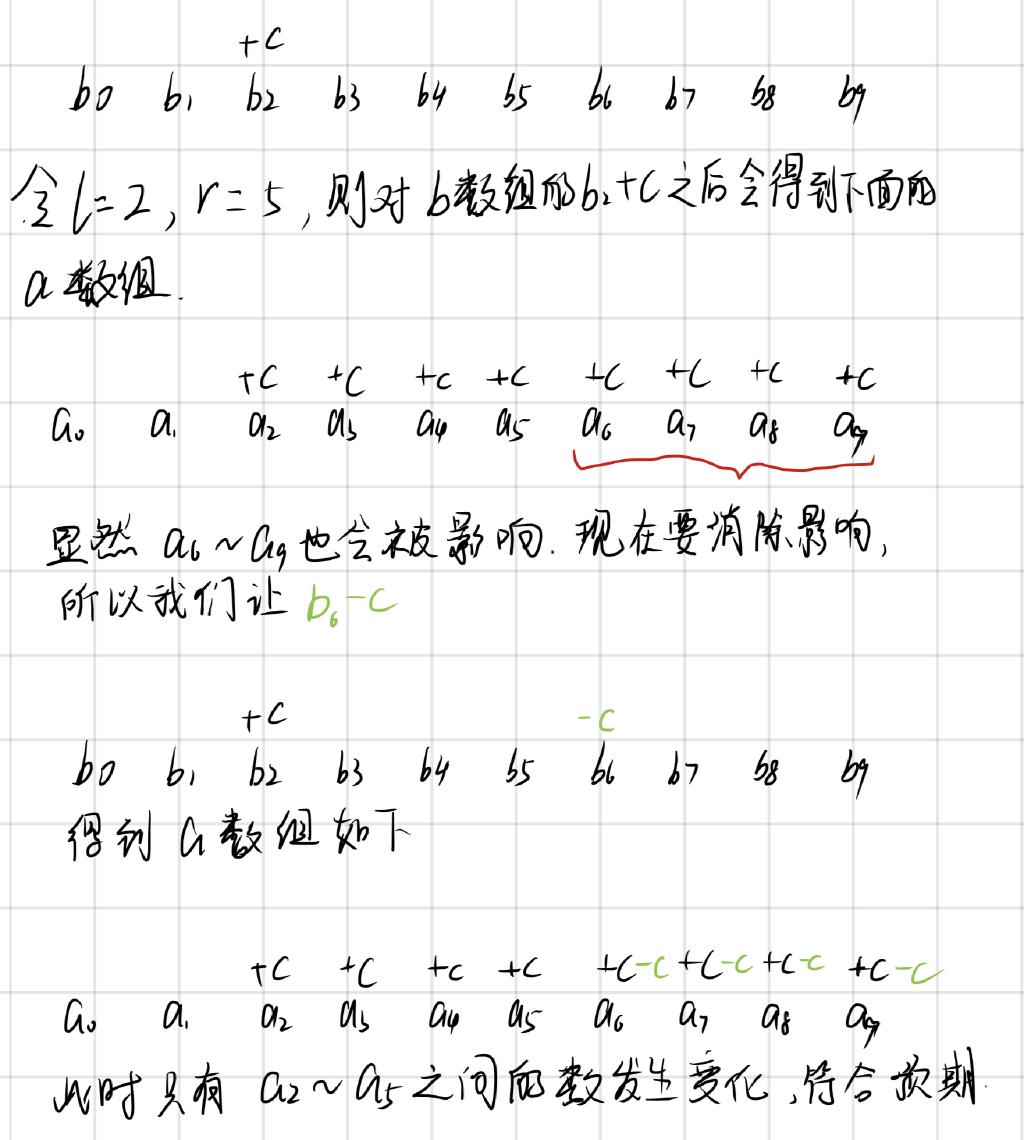 +c
b0 b1 b2 b3 b4 b5 b6 b7 b8 b9
令l=2, r=5, 则对b数组的b2+c之后会得到下面的
a数组.
+c +c +c +c +c +c +c +c
a0 a1 a2 a3 a4 a5 a6 a7 a8 a9
显然 a6~a9也会被影响. 现在要消除影响,
所以我们让 b6-c
+c -c
b0 b1 b2 b3 b4 b5 b6 b7 b8 b9
得到a数组如下
+c +c +c +c +c-c +c-c +c-c +c-c
a0 a1 a2 a3 a4 a5 a6 a7 a8 a9
此时只有 a2~a5之间的数发生变化,符合预期.